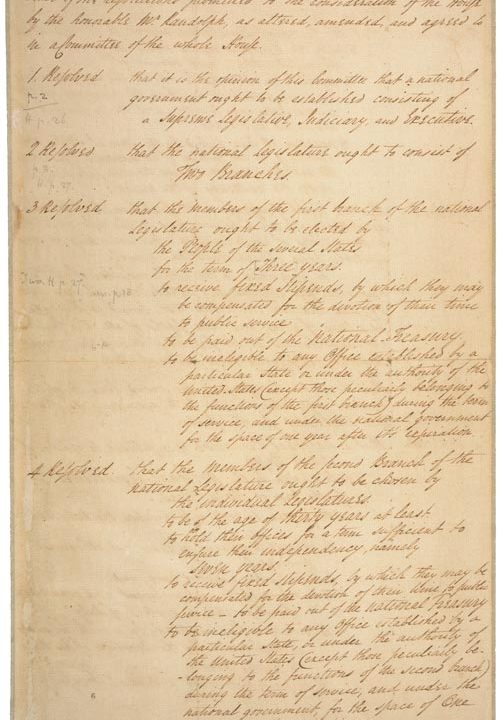 by the honorable Mr Randolph, as altered, amended, and agreed to
in a Committee of the whole House.
1. Resolved that it is the opinion of this Committee that a national
p. 2
government ought to be established consisting of
a Supreme Legislative, Judiciary, and Executive.
2 Resolved that the national legislature ought to consist of
Two Branches.
3 Resolved that the members of the first branch of the national
Legislature ought to be elected by
the People of the several States
for the term of Three years.
to receive fixed Stipends, by which they may
be compensated for the devotion of their time
to public service
to be paid out of the National-Treasury.
to be ineligible to any Office established by a
particular State or under the authority of the
United-States (except those peculiarly belonging to
the functions of the first branch) during the term
of service, and under the national government
for the space of one year after its expiration.
4 Resolved. that the members of the second Branch of the
national Legislature ought to be chosen by
the individual Legislatures.
to be of the age of thirty years at least.
to hold their offices for a term sufficient to
ensure their independency, namely
seven years.
to receive fixed Stipends, by which they may be
compensated for the devotion of their time to public
service – to be paid out of the National Treasury
to be ineligible to any Office established by a
particular State, or under the authority of
the United States (except those peculiarly be-
-longing to the functions of the second branch)
during the term of service, and under the
national government, for the space of One